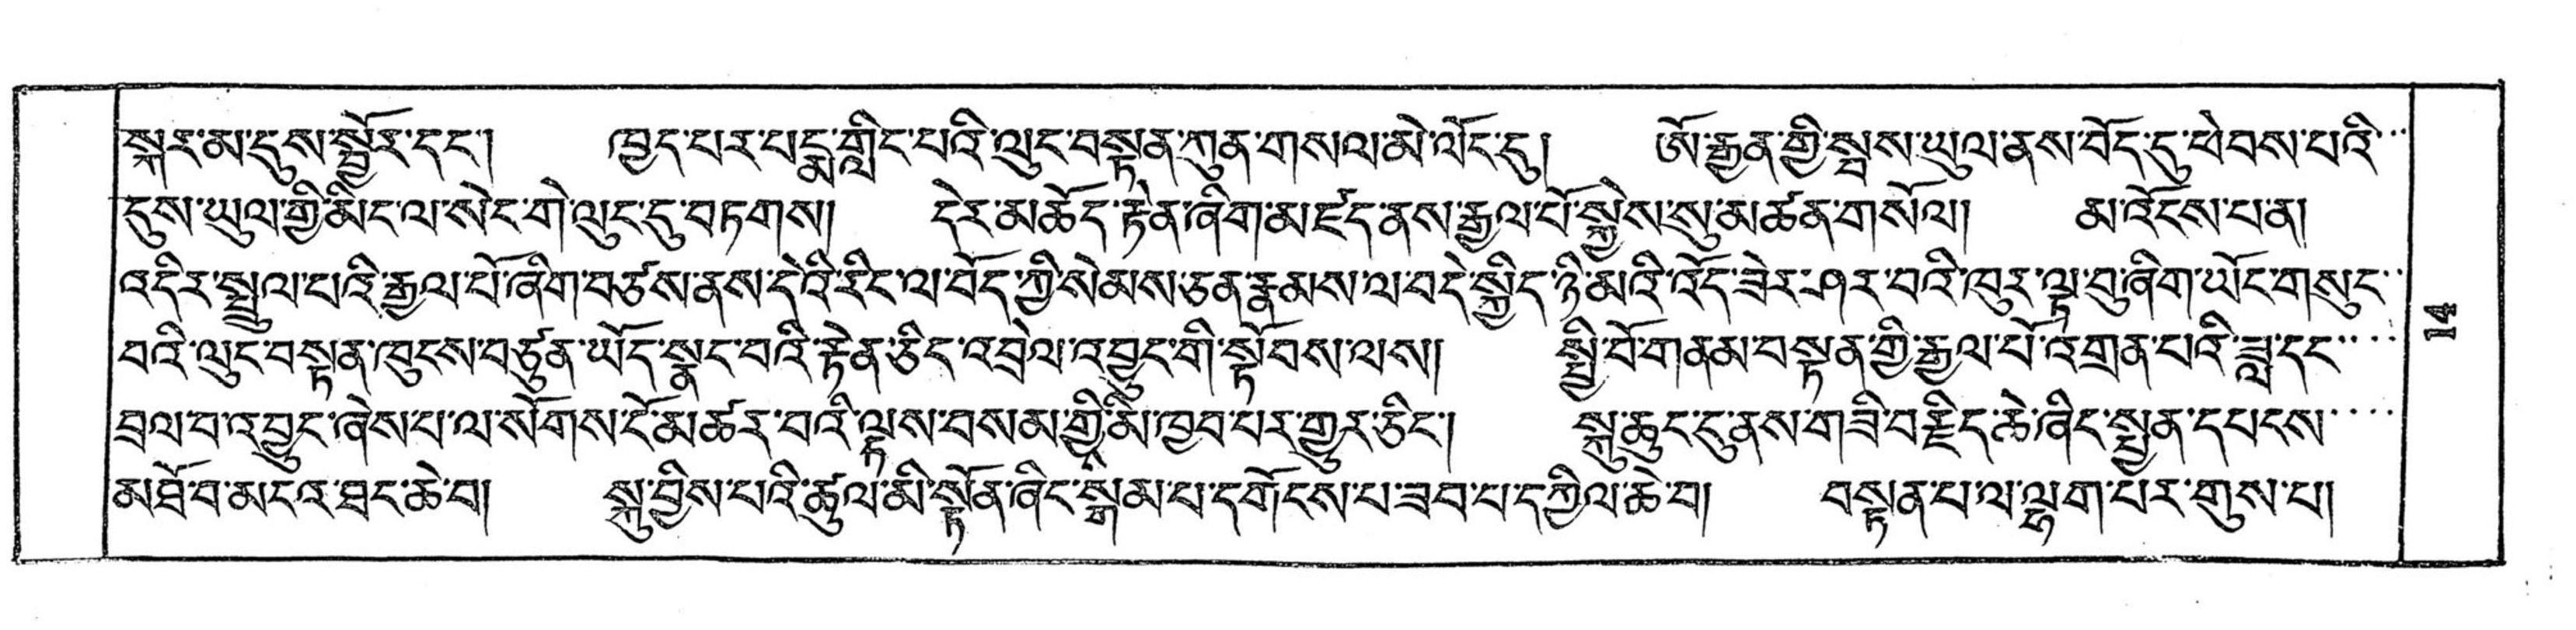 སྐར་མ་དུས་སྦྱོར་དང་། ཁྱད་པར་པདྨ་གླིང་པའི་ལུང་བསྟན་ཀུན་གསལ་མེ་ལོང་དུ། ཨོ་རྒྱན་གྱི་སྦས་ཡུལ་ནས་བོད་དུ་ཕེབས་པའི་
དུས་ཡུལ་གྱི་མིང་ལ་སེང་གེ་ལུང་དུ་བཏགས། དེར་མཆོད་རྟེན་ཞིག་མཛད་ནས་རྒྱལ་པོ་སྐྱེས་སུ་མཚན་གསོལ། མ་འོངས་པན།
འདིར་སྤྲུལ་པའི་རྒྱལ་པོ་ཞིག་བཙས་ནས་དེའི་རིང་ལ་བོད་ཀྱི་སེམས་ཅན་རྣམས་ལ་བདེ་སྐྱིད་ཉི་མའི་འོད་ཟེར་ཤར་བའི་ཁུར་ལྟ་བུ་ཞིག་ཡོང་གསུང་
བའི་ལུང་བསྟན་ཁུངས་བཙུན་ཡོད་སྣང་བའི་རྟེན་ཅིང་འབྲེལ་འབྱུང་གི་སྟོབས་ལས། སྤྱི་བོ་གནམ་བསྟན་གྱི་རྒྱལ་པོ་འགྲན་པའི་ཟླ་དང་
བྲལ་བ་འབྱུང་ཞེས་པ་ལ་སོགས་ངོ་མཚར་བའི་ལྟས་བསམ་གྱི་མི་ཁྱབ་པར་གྱུར་ཅིང་། སྐུ་ཆུང་ངུ་ནས་གཟི་བརྗིད་ཆེ་ཞིང་སྤྱན་དཔངས་
མཐོ་བ་མངའ་ཐང་ཆེ་བ། སྐུ་བྱིས་པའི་ཚུལ་མི་སྟོན་ཞིང་སྒམ་པ་དགོངས་པ་ཟབ་པ་དཀྱིལ་ཆེ་བ། བསྟན་པ་ལ་ལྷག་པར་གུས་པ།